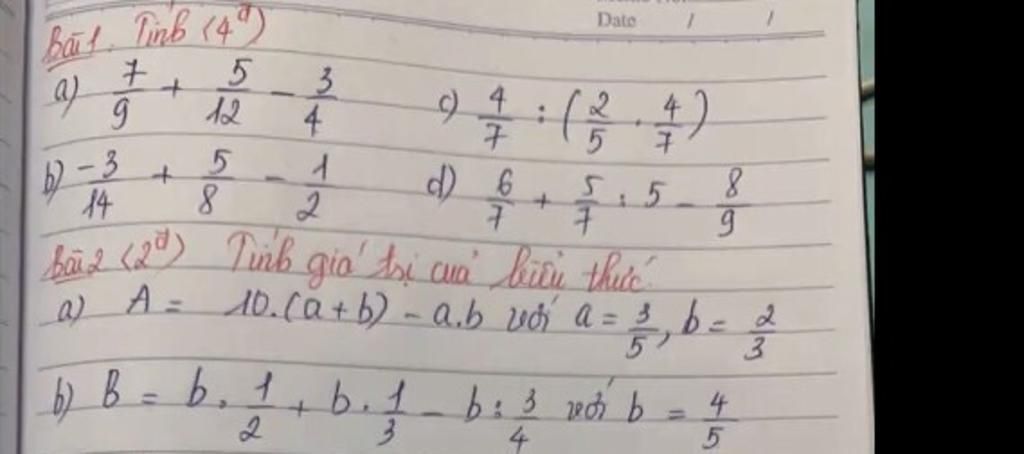 Date / /
Bài 1. Tính (4đ)
a) 7/9 + 5/12 - 3/4
c) 4/7 : (2/5 . 4/7)
b) -3/14 + 5/8 - 1/2
d) 6/7 + 5/7 : 5 - 8/9
Bài 2 (2đ) Tính giá trị của biểu thức
a) A = 10.(a+b) - a.b với a = 3/5, b = 2/3
b) B = b . 1/2 + b . 1/3 - b : 3/4 với b = 4/5